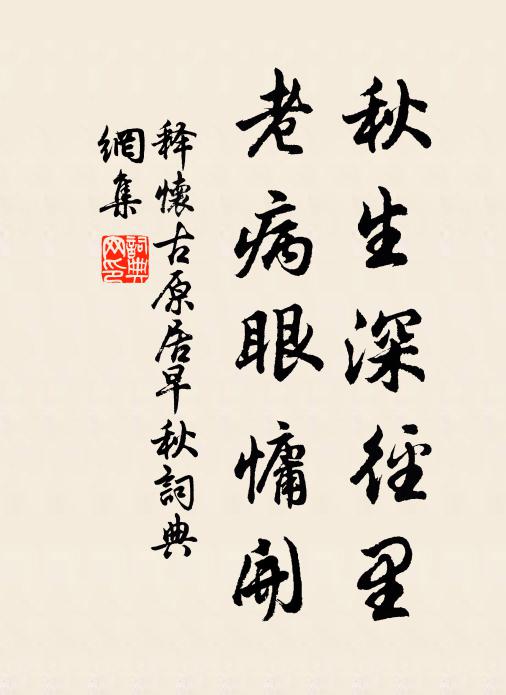 秋生深径里
老病眼慵開
释懷古原居早秋詞典
網集
詞典
网印